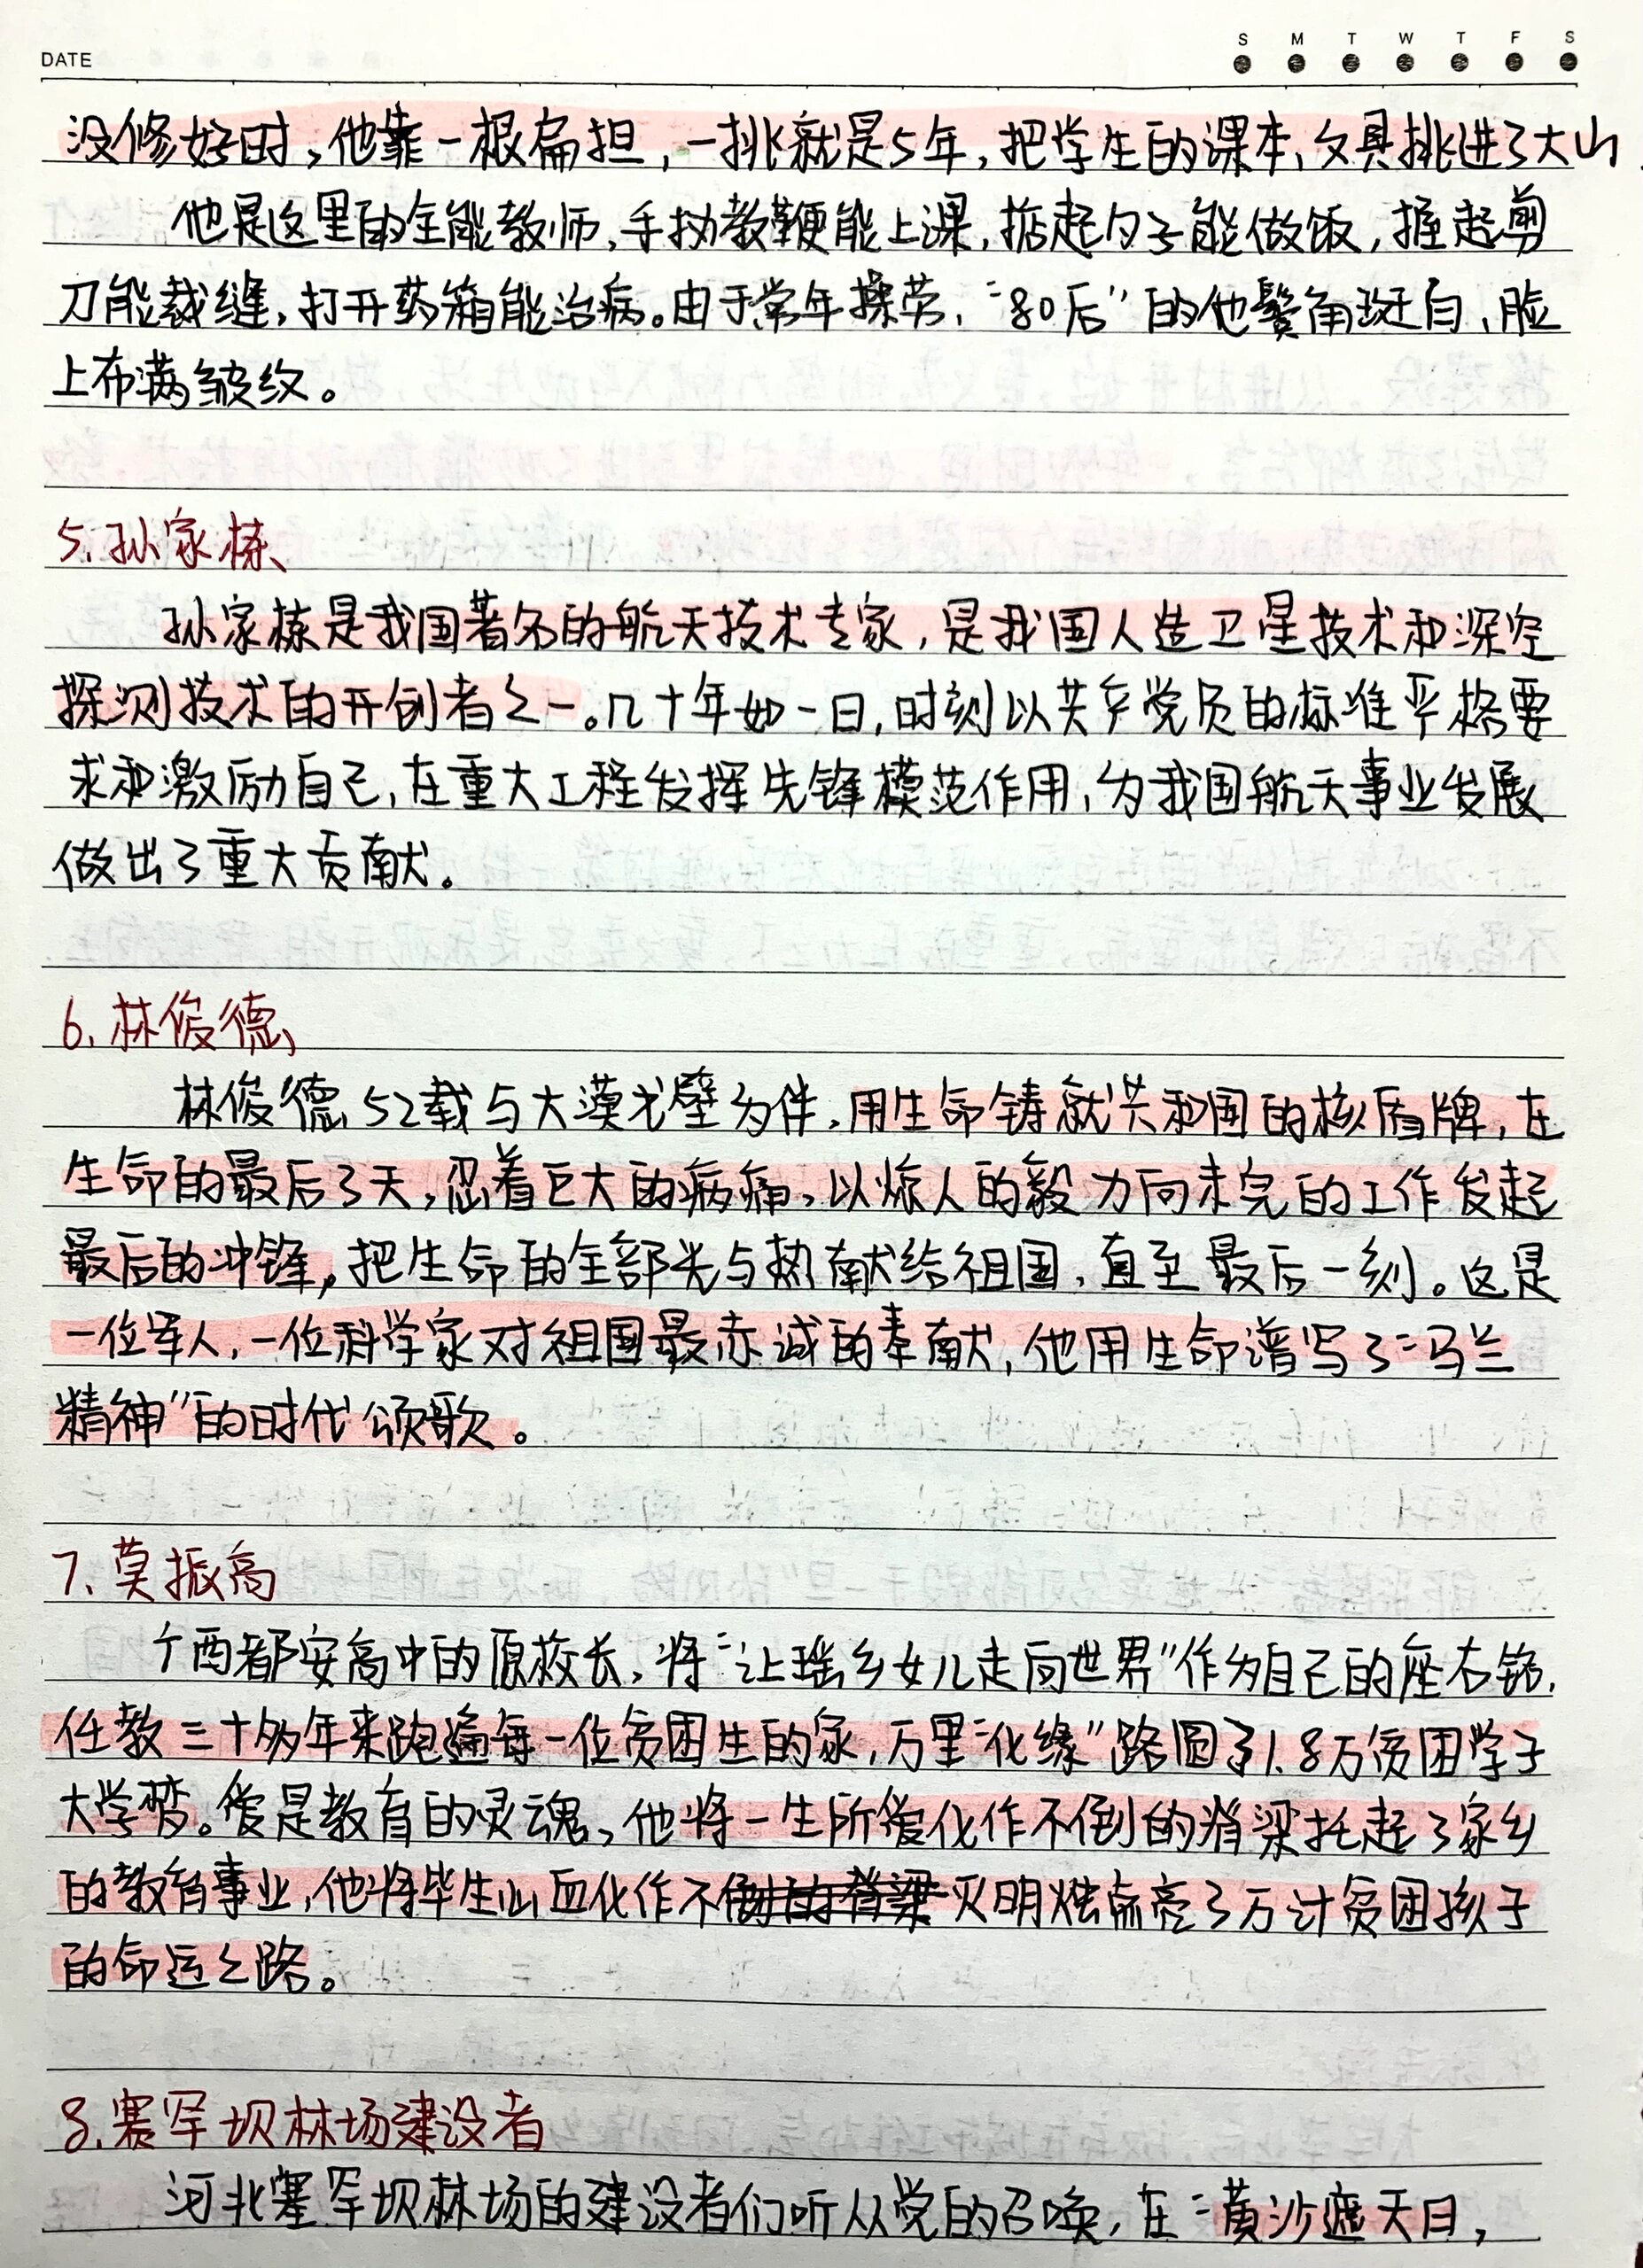 DATE
S M T W T F S
没修好时，他靠一根扁担，一挑就是5年，把学生的课本、文具挑进了大山
他是这里的全能教师，手执教鞭能上课，掂起勺子能做饭，握起剪
刀能裁缝，打开药箱能治病。由于常年操劳，“80后”的他鬓角斑白，脸
上布满皱纹。
5、孙家栋、
孙家栋是我国著名的航天技术专家，是我国人造卫星技术和深空
探测技术的开创者之一。几十年如一日，时刻以共产党员的标准严格要
求和激励自己，在重大工程发挥先锋模范作用，为我国航天事业发展
做出了重大贡献。
6、林俊德、
林俊德52载与大漠戈壁为伴，用生命铸就共和国的核盾牌，在
生命的最后3天，忍着巨大的病痛，以惊人的毅力向未完的工作发起
最后的冲锋，把生命的全部光与热献给祖国，直至最后一刻。这是
一位军人，一位科学家对祖国最赤诚的奉献，他用生命谱写了“马兰
精神”的时代颂歌。
7、莫振高
广西都安高中的原校长，将“让瑶乡女儿走向世界”作为自己的座右铭，
任教三十多年来跑遍每一位贫困生的家，万里“化缘”路圆了1.8万贫困学子
大学梦。爱是教育的灵魂，他将一生所爱化作不倒的脊梁托起了家乡
的教育事业，他将毕生心血化作不倒的脊梁灭明烛点亮了万计贫困孩子
的命运之路。
8、塞罕坝林场建设者
河北塞罕坝林场的建设者们听从党的召唤，在“黄沙遮天日，